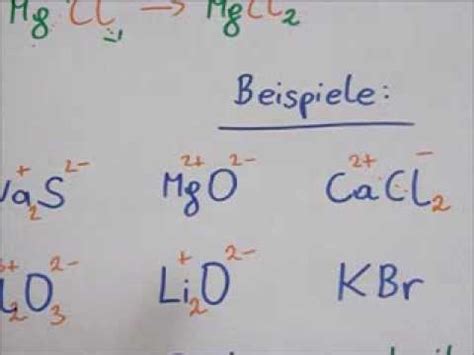 Mg Cl → MgCl₂
Beispiele:
+ 2- 2+ 2- 2+ -
a₂S MgO CaCl₂
3+ 2- + 2-
l₂O₃ Li₂O KBr